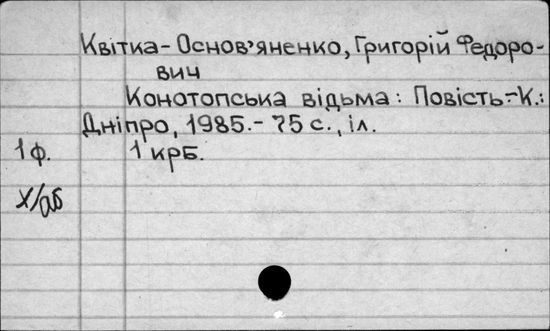 Квітка-Основ'яненко, Григорій Федоро-
вич
Конотопська відьма: Повість.-К.:
Дніпро, 1985.-75 с., іл.
1 ф. 1 крб.
х/аб